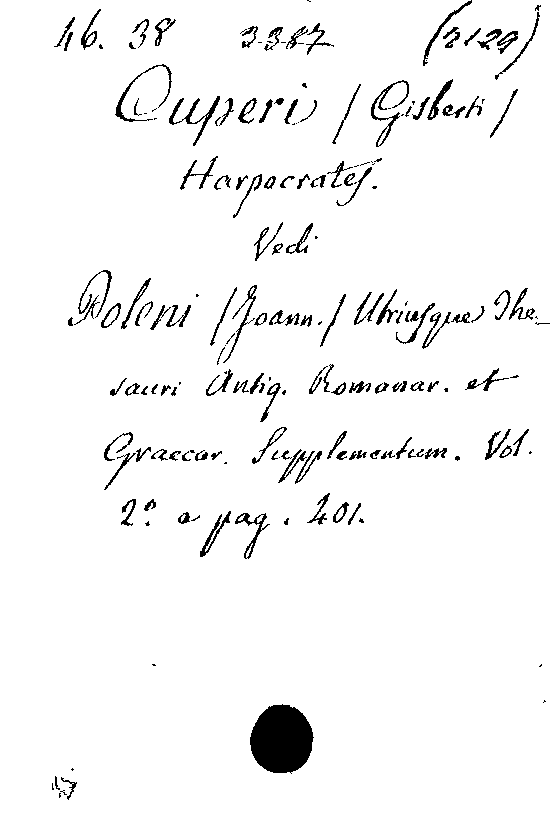 46. 38 3387 (2129)
Cuperi / Gisberti /
Harpocrates.
Vedi
Poleni / Joann. / Utriusque The-
sauri Antiq. Romanar. et
Graecar. Supplementum. Vol.
2.° a pag. 401.